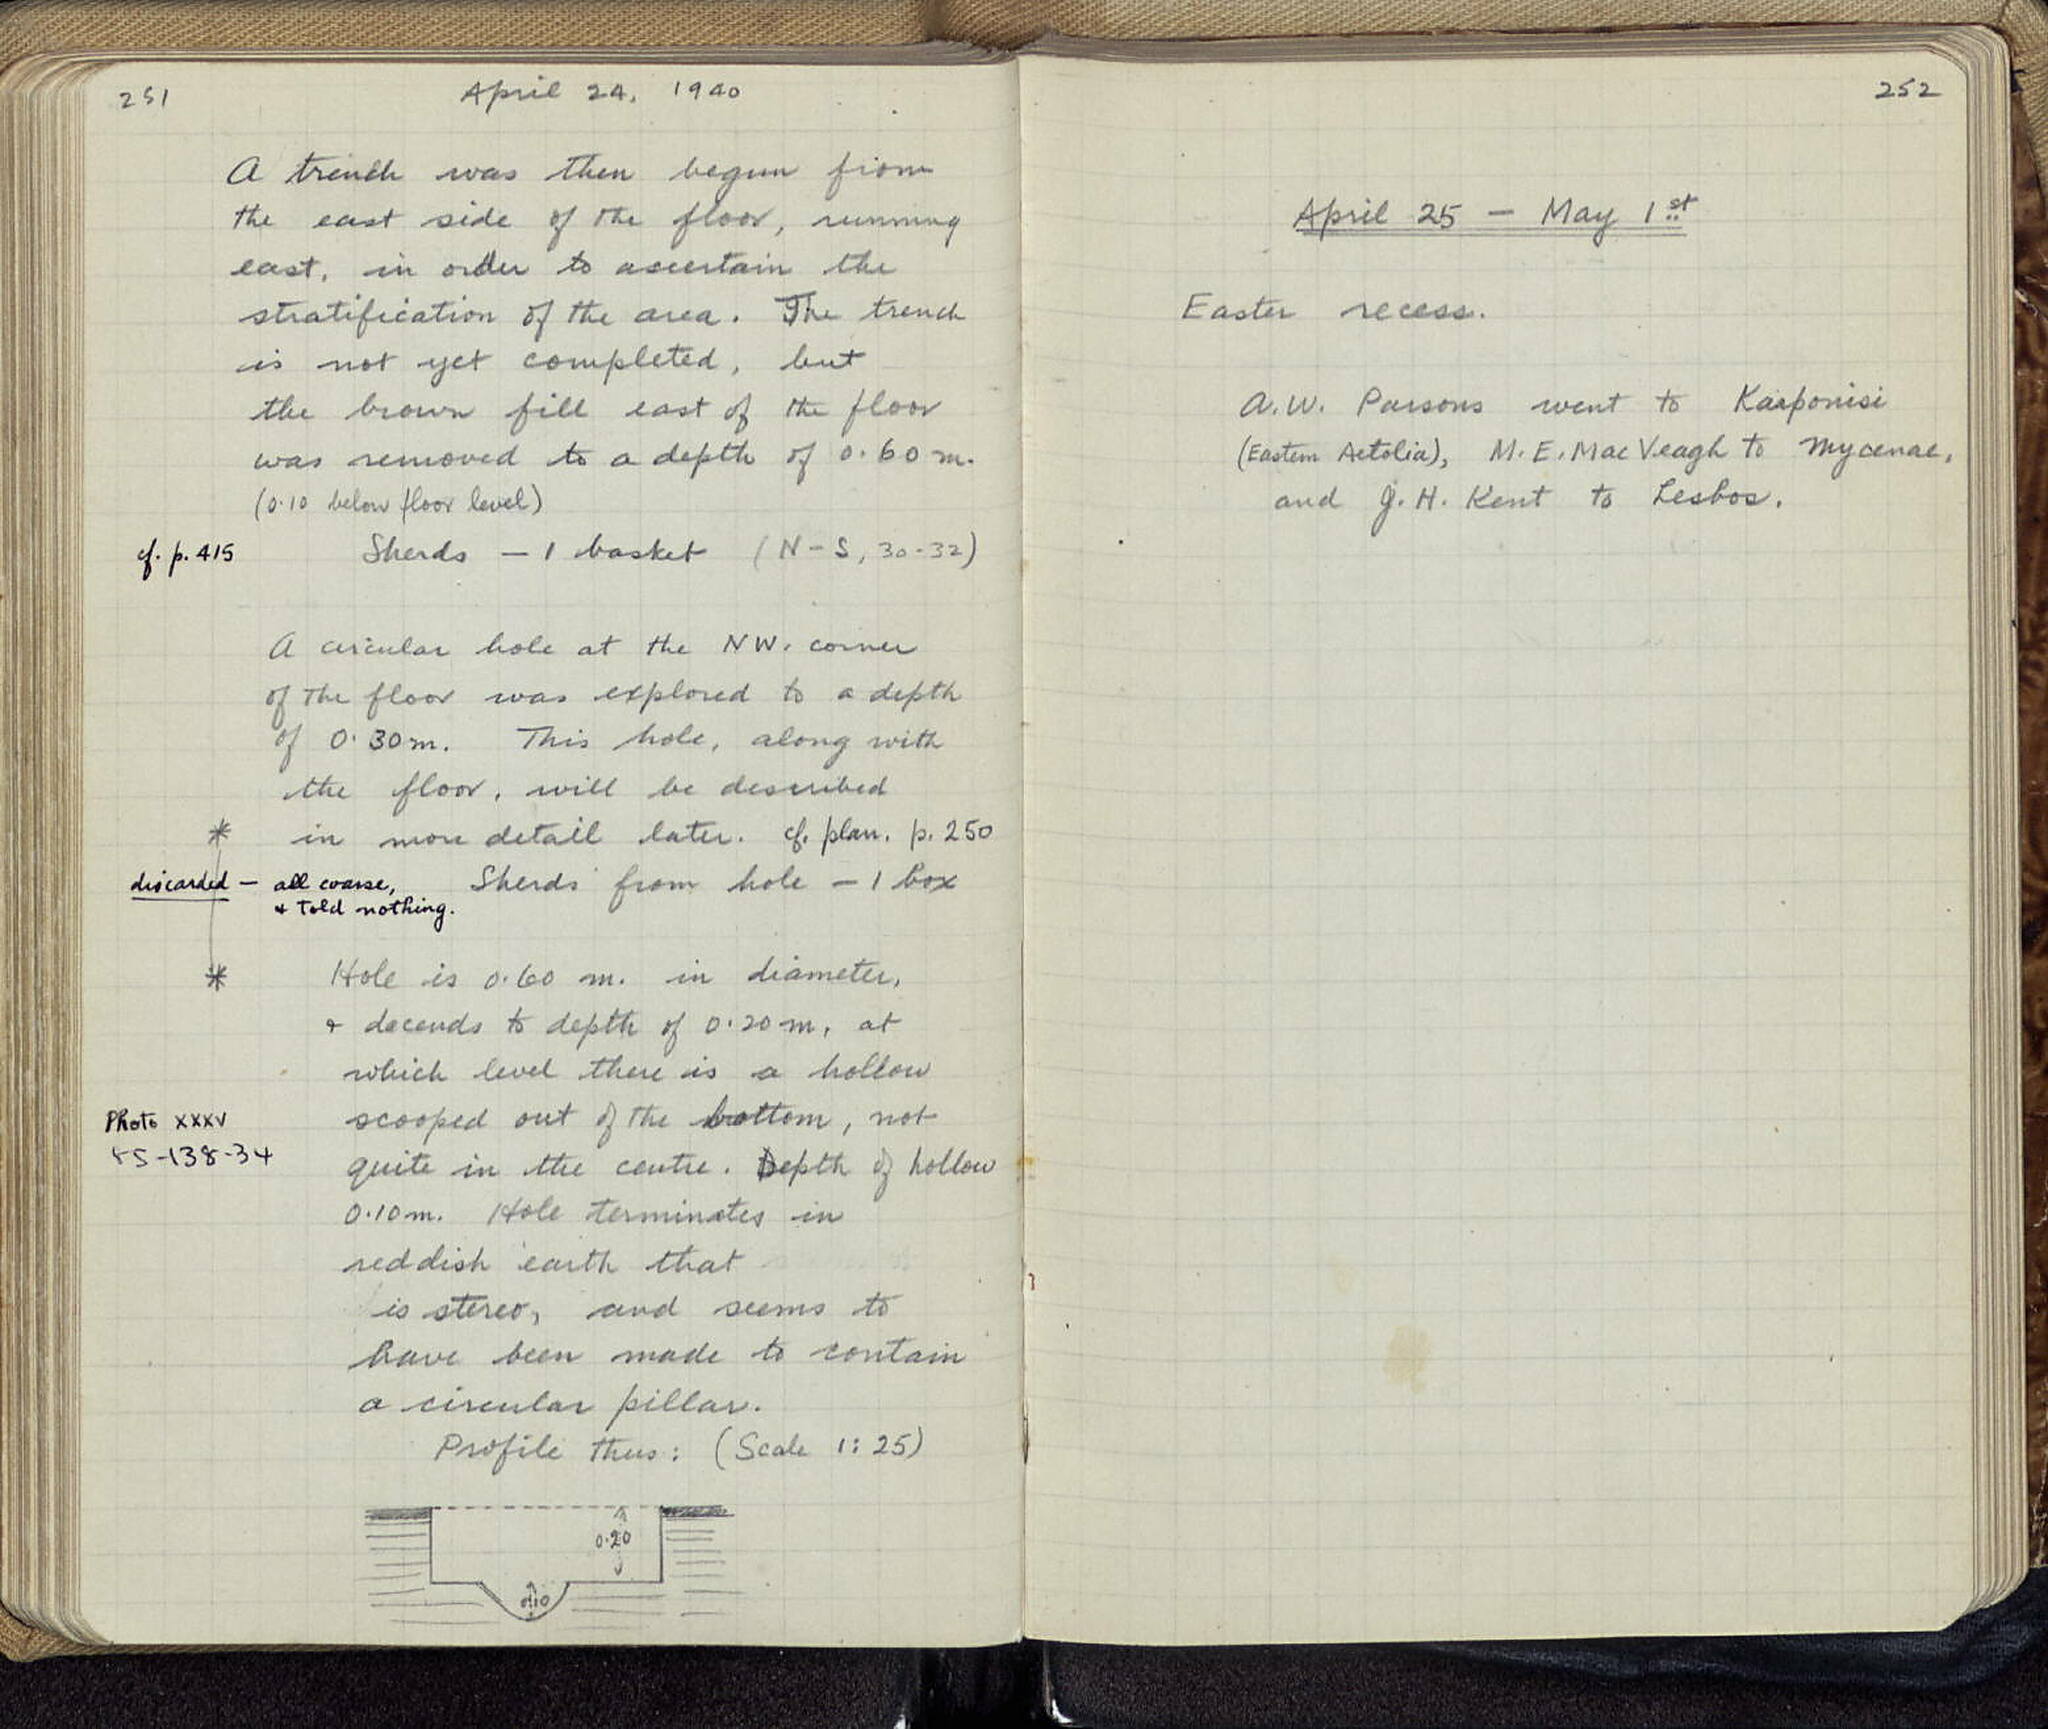 251
April 24, 1940
A trench was then begun from
the east side of the floor, running
east, in order to ascertain the
stratification of the area. The trench
is not yet completed, but
the brown fill east of the floor
was removed to a depth of 0.60 m.
(0.10 below floor level)
cf. p. 415 Sherds — 1 basket (N-S, 30-32)
A circular hole at the NW. corner
of the floor was explored to a depth
of 0.30 m. This hole, along with
the floor, will be described
* in more detail later. cf. plan. p. 250
discarded — all coarse, Sherds from hole — 1 box
& told nothing.
* Hole is 0.60 m. in diameter,
& decends to depth of 0.20 m, at
which level there is a hollow
Photo XXXV scooped out of the bottom, not
-138-34 quite in the centre. Depth of hollow
0.10 m. Hole terminates in
reddish earth that
is stereo, and seems to
have been made to contain
a circular pillar.
Profile thus: (Scale 1:25)
0.20
0.10
252
April 25 — May 1st
Easter recess.
A.W. Parsons went to Karponisi
(Eastern Aetolia), M.E. MacVeagh to Mycenae,
and J.H. Kent to Lesbos.